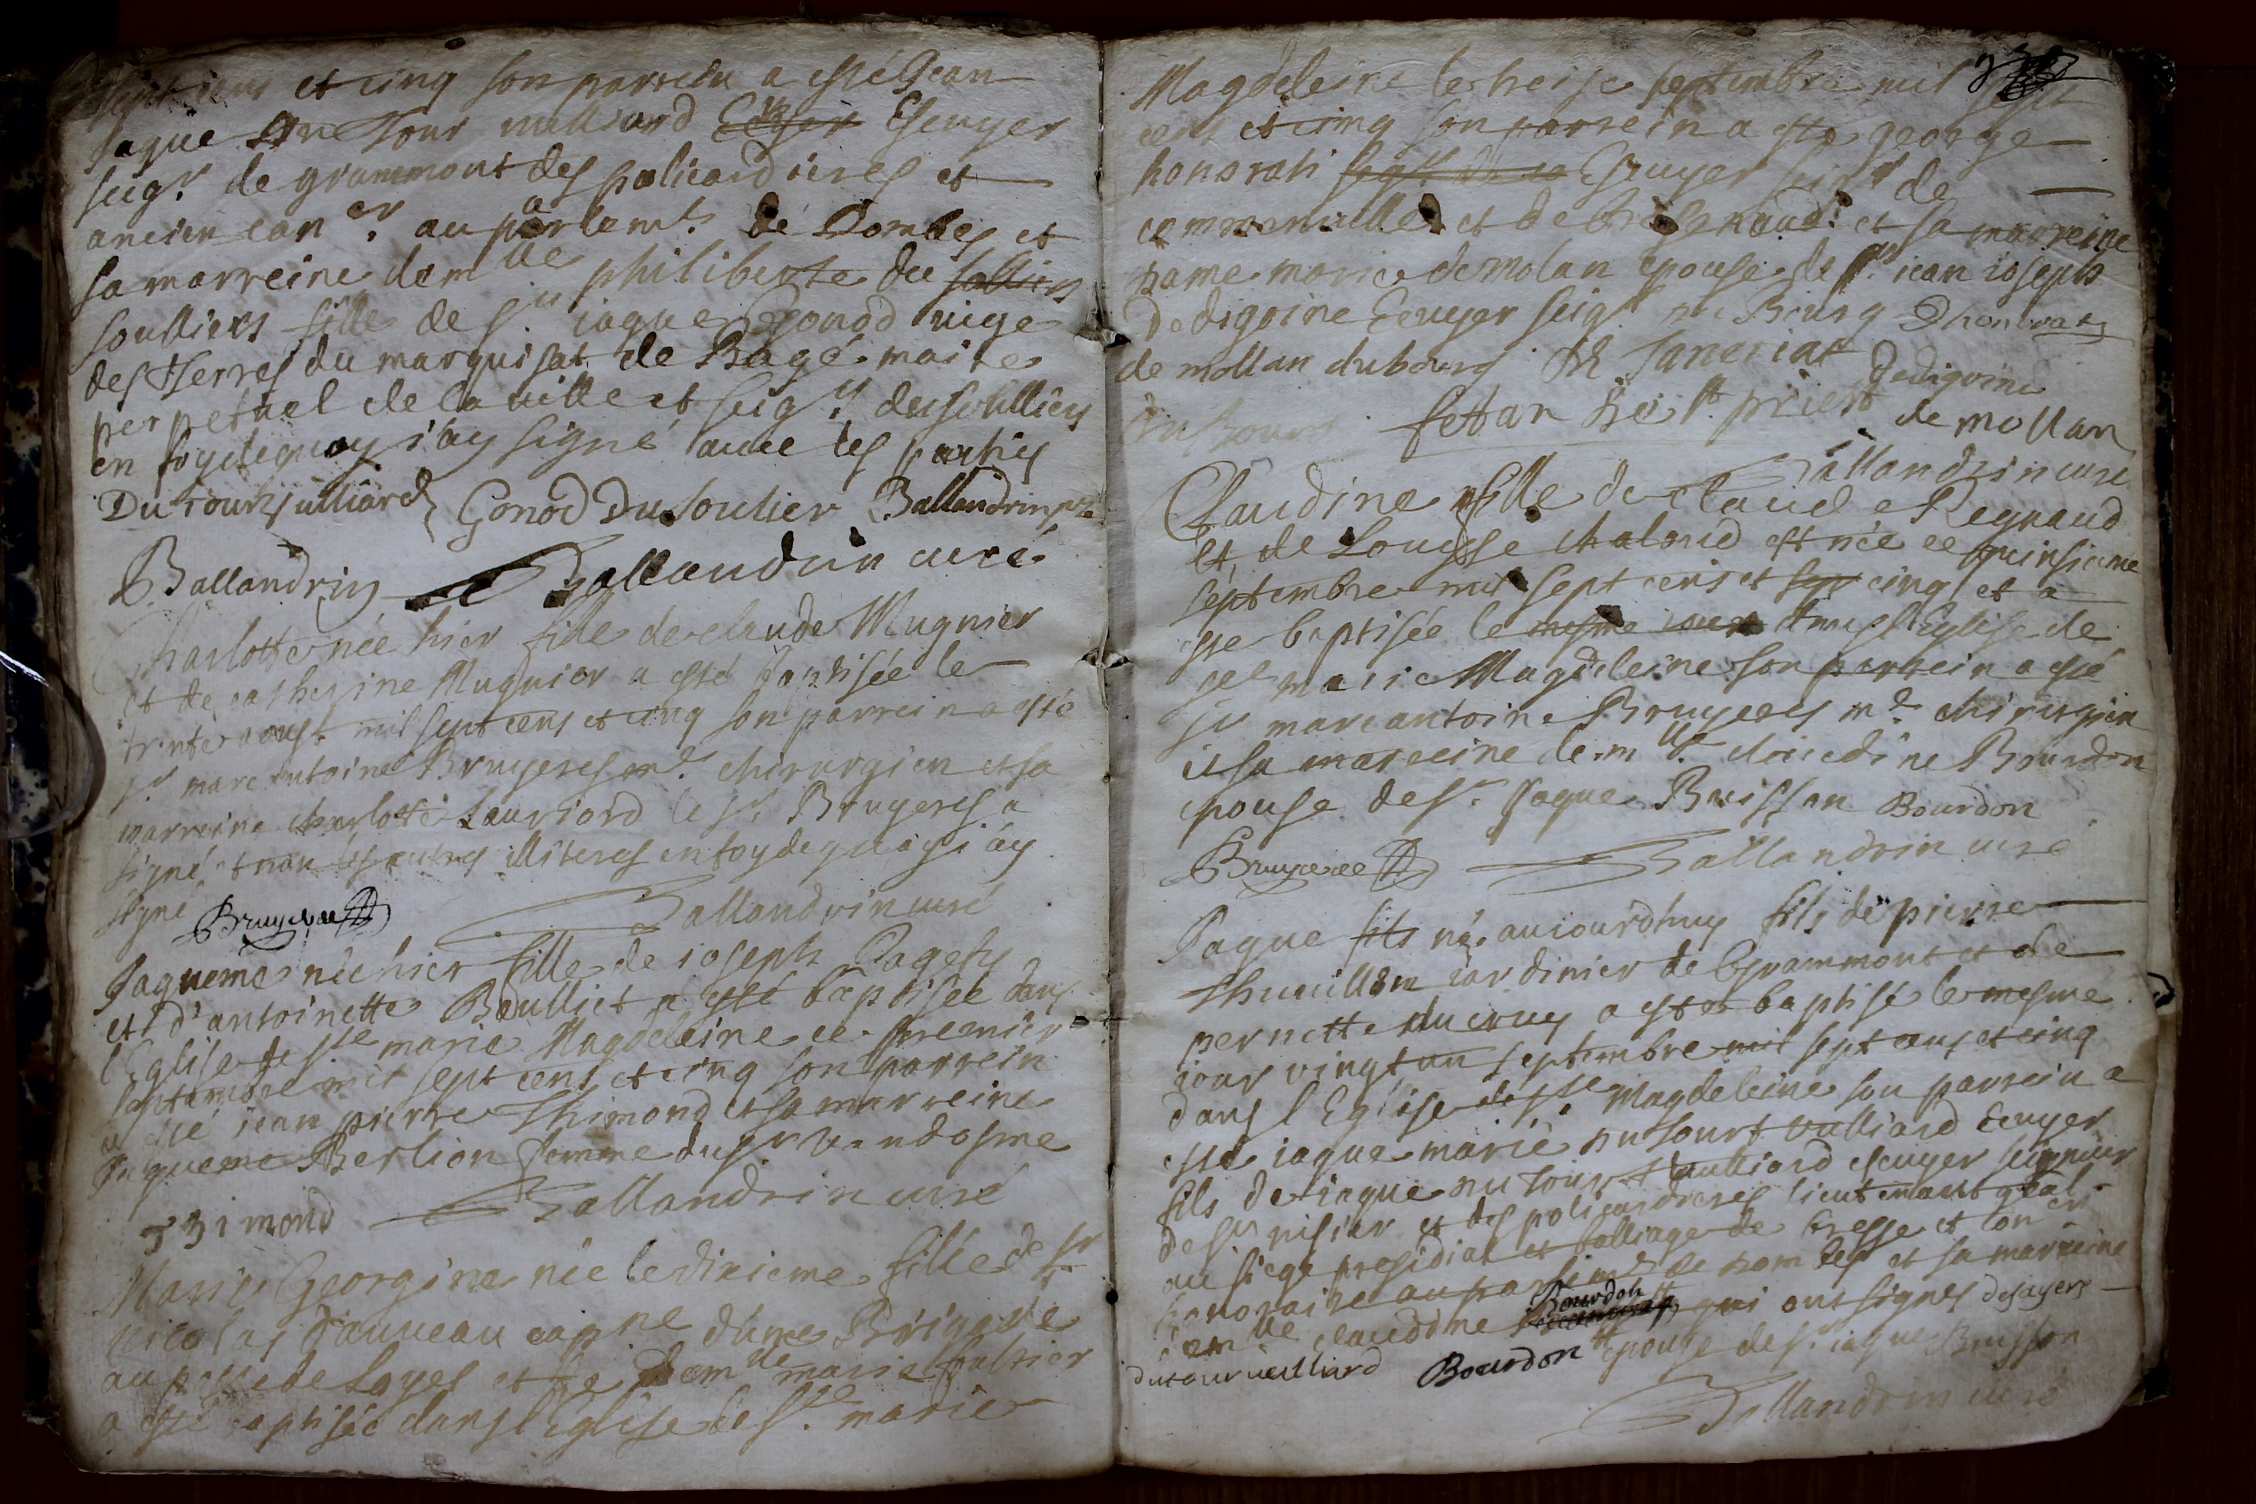 sept cens et cinq son parrein a esté Jean
Jaque du tour vulliard Escuyer
seigr. de grammont des policardieres et
ancien coner. au parlemt. de Dombes et
sa marreine demlle philiberte du
soulliers fille de sr. iaque Gonod iuge
des Terres du marquisat de Bagé maire
perpetuel de la ville et seigr. du soulliers
en foy de quoy i'ay signé avec les parties
Dutour vulliard Gonod Du Soulier Ballandrin
Ballandrin Ballandrin curé
Charlotte née hier fille de claude Mugnier
et de catherine Mugnier a esté baptisée le
trente aoust mil sept cens et cinq son parrein a esté
sr. marc antoine Bruyeres me. chirurgien et sa
marreine charlotte Lauriord le sr. Bruyeres a
signé et non les autres illiteres en foy de quoy i'ay
signé
Bruyere Ballandrin curé
Jaqueme née hier fille de ioseph Pagety
et d'antoinette Boulliet a esté baptisée dans
l'Eglise de ste marie Magdeleine ce premier
septembre mil sept cens et cinq son parrein
a esté iean pierre Thimond et sa marreine
Jaqueme Berlion femme du sr vandosme
Thimond Ballandrin curé
Marie Georgine née le dixieme fille de sr
nicolas Fauveau capne d'une Brigade
au poste de Loyes et de Demlle marie
a esté baptisée dans l'Eglise de ste. marie
Magdeleine le treise septembre mil sept
cens et cinq son parrein a esté george
honorati Escuyer seigr de
et de et sa marreine
Dame marie de Molan epouse de sr. iean ioseph
De digoine Ecuyer seigr du Bourg Dhonoraty
de mollan dubourg Janeriat Dedigoine
du Bourg de st priest de mollan
Ballandrin curé
Claudine fille de claude Regnaud
et de Louyse chaland est née ce quinsieme
septembre mil sept cens et sept cinq et a
esté baptisée le mesme iour dans l'Eglise de
ste marie Magdeleine son parrein a esté
sr marc antoine Bruyeres me. chirurgien
et sa marreine demlle. claudine Bourdon
epouse de sr. Jaque Buisson Bourdon
Bruyere Ballandrin curé
Jaque fils né auiourdhuy fils de pierre
Thuaillon iardinier de Grammont et de
pernette ducruy a esté baptisé le mesme
iour vingt un septembre mil sept cens et cinq
dans l'Eglise de ste Magdeleine son parrein a
esté iaque marie dutour vulliard Ecuyer
fils de iaque du tour vulliard escuyer seigneur
de st nisier et des policardieres lieutenant gnal
au siege presidial et balliage de bresse et coner
honoraire au parlemt de Dombes et sa marreine
demlle claudine Bourdon qui ont signes
dutour vulliard Bourdon epouse de sr. iaque Buisson
Ballandrin curé